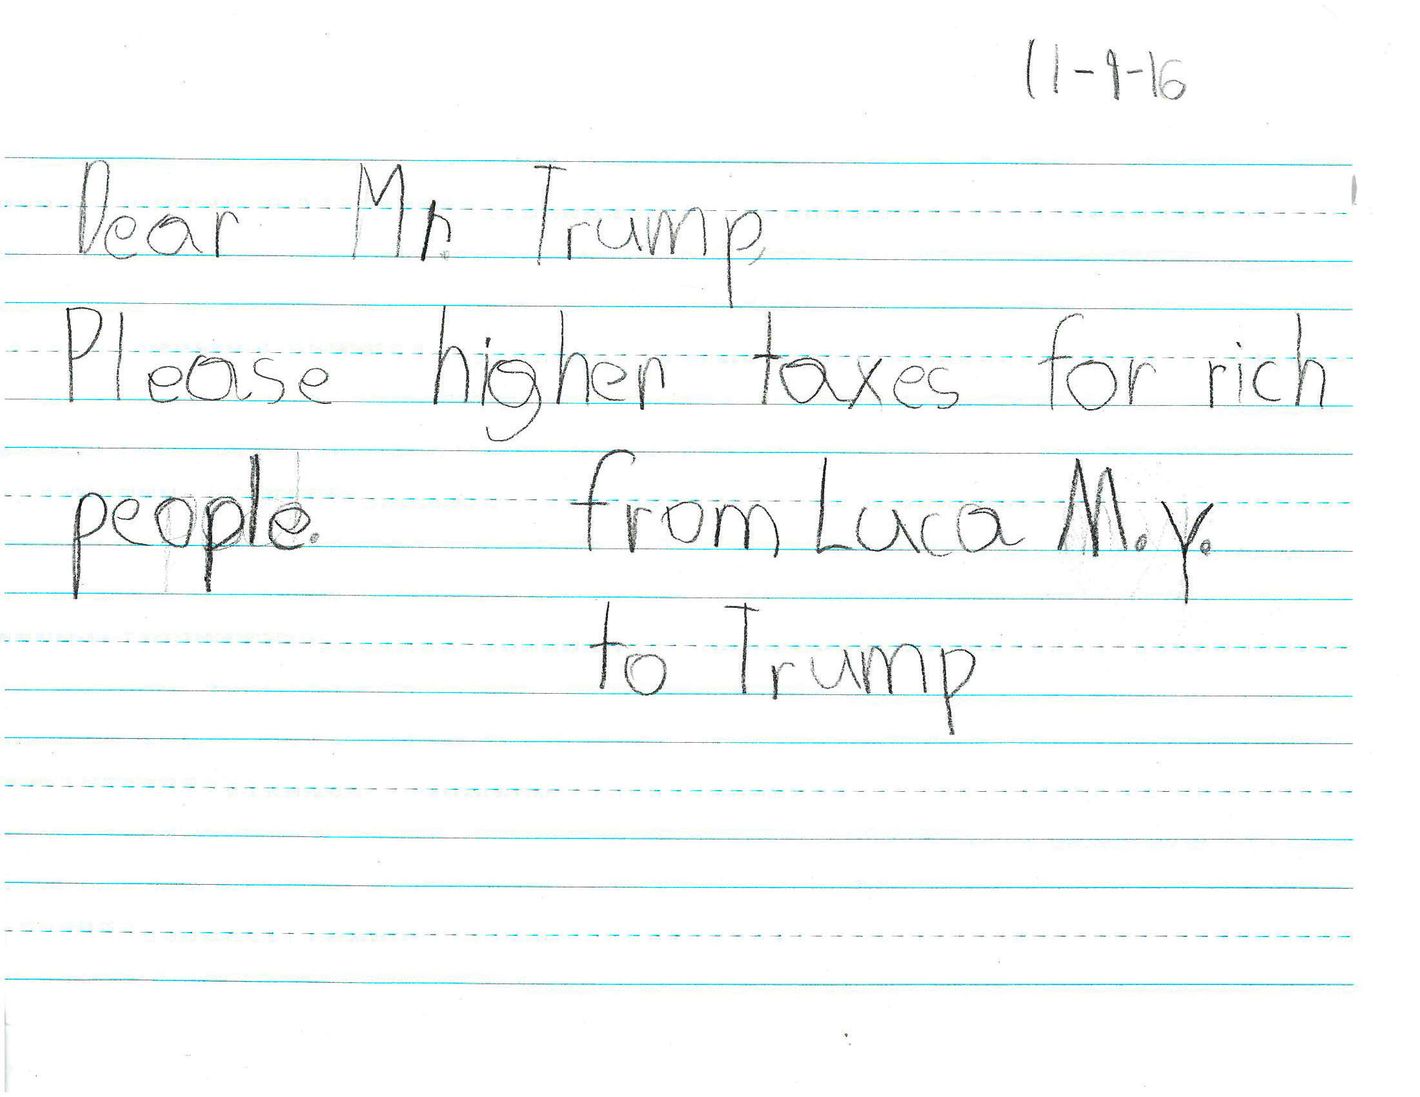 11-9-16
Dear Mr. Trump,
Please higher taxes for rich
people. from Luca M.y.
to Trump